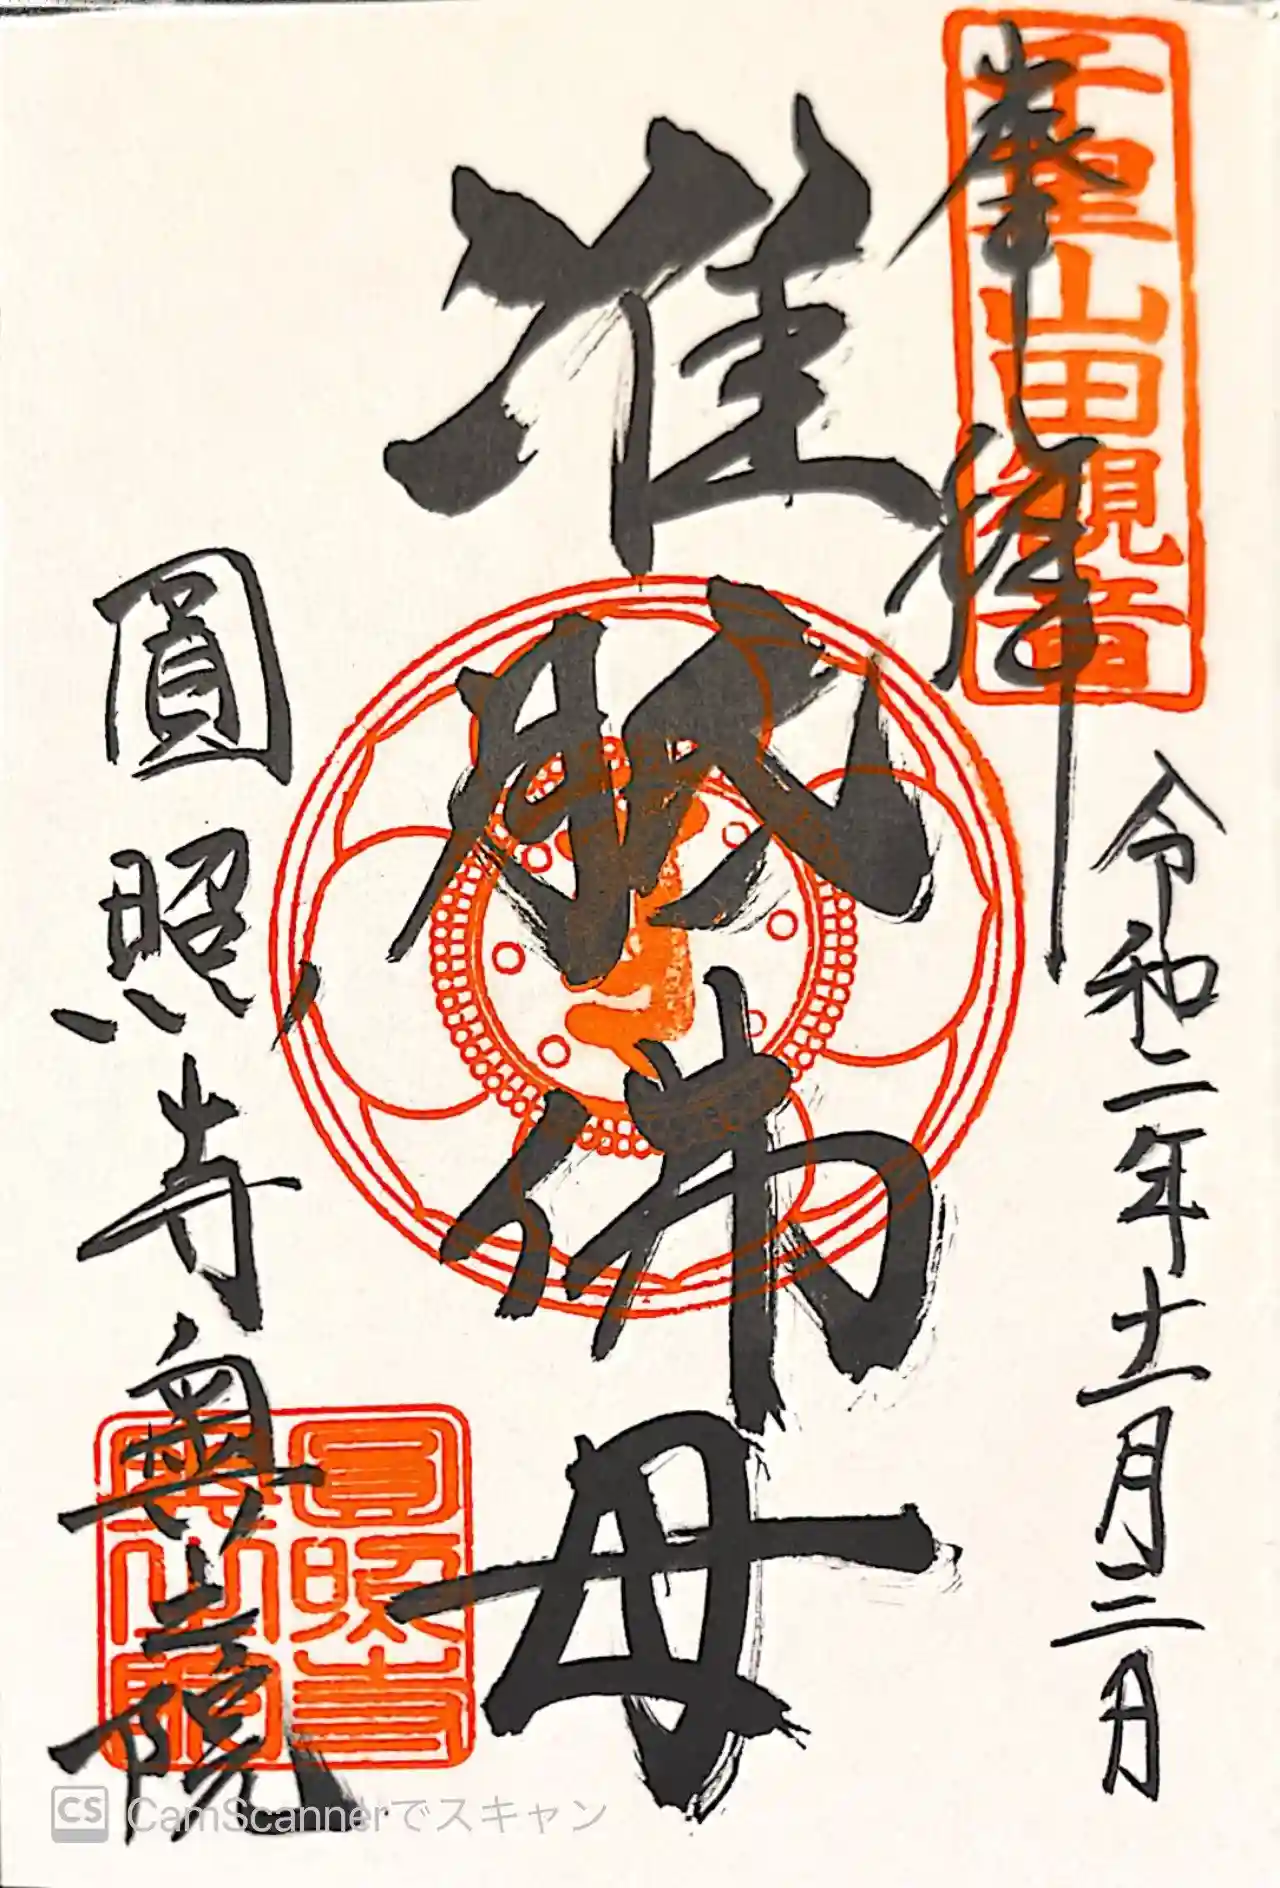 千里山田観音
奉拝
令和二年十一月三日
准胝佛母
圓照寺奥之院
圓照寺
奥之院
CS CamScannerでスキャン